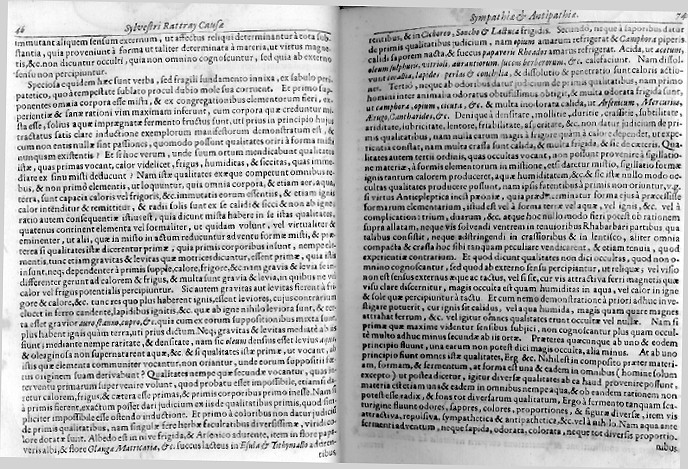 46 Sylvestri Rattray Causæ
immutant aliquem sensum externum, ut affectus reliqui determinantur à cota sub-
stantia, quia proveniunt à forma ut taliter determinata à materia, ut virtus magne-
tis, &c. non dicuntur occulti, quia non omnino cognoscuntur, sed quia ab externo
sensu non percipiuntur.
Speciosa equidem hæc sunt verba, sed fragili fundamento innixa, ex fabulo peri-
patetico, quo atempestate sublato procul dubio mole sua corruent. Et primo sup-
ponentes omnia corpora esse mista, & ex congregatione elementorum fieri, ex-
perientiæ & sanæ rationi vim maximam inferunt, cum corpora quæ creduntur mi-
sta esse, solius aquæ impregnatæ fermento fructus sunt, uti prius in principio hujus
tractatus satis clare inductione exemplorum manifestorum demonstratum est, &
cum non entis nullæ sint passiones, quomodo possunt qualitates oriri à forma misti
nunquam existentis? Et si hoc verum, unde suum ortum mendicabant qualitates
istæ, quas primas vocant, calor videlicet, frigus, humiditas, & siccitas, quas imme-
diate ex sinu misti deducunt? Nam istæ qualitates exæque competunt omnibus re-
bus, & non primo elementis, ut loquuntur, quia omnia corpora, & etiam aer, aqua,
terra, sunt capacia caloris vel frigoris, &c. immutata eorum essentiis, & etiam ignis
calor intenditur & remittitur, & radii solis sunt ex se calidi & sicci & non ab igne;
ratio autem consequentiæ istius est, quia dicunt mista habere in se istas qualitates,
quatenus continent elementa vel formaliter, ut quidam volunt, vel virtualiter &
eminenter, ut alii, quæ in misto in actum reducuntur adventu formæ misti, & præ-
terea si qualitates istæ dicerentur primæ, quia primis corporibus insunt, nempe ele-
mentis, tunc etiam gravitas & levitas quæ motrices dicuntur, essent primæ, quia istis
insunt, neq; dependenter à primis supple, calore, frigore, &c. nam gravia & levia se in-
differenter gerunt ad calorem & frigus, & multa sunt gravia & levia, in quibus ne vis
calor vel frigus potentialis percipiuntur. Sic autem gravitas aut levitas fierent à fri-
gore & calore, &c. tunc res quo plus haberent ignis, essent leviores, cujus contrarium
elucet in ferro candente, lapidibus ignitis, &c. quæ ab igne nihilo leviora sunt, & ter-
ra esset gravior auro, stanno, cupro, &c. quia cum ex eorum suppositionibus mixta sunt,
plus habent ignis quam terra, uti prius dictum. Neq; gravitas & levitas mediatè ab is
fiunt; mediante nempe raritate, & densitate, nam sic oleum densius esset levius aqua;
& oleaginosa non supernatarent aquæ, &c. & si qualitates istæ primæ, ut vocantur, ab
istis quæ elementa communiter vocantur, non oriantur, unde eorum suppositi se-
tus originem suam derivabunt? Qualitates nempe quæ secundæ vocantur, quas in-
terventu primarum supervenire volunt, quod probatu esset impossibile, etiamsi da-
retur calorem, frigus, & cætera esse primas, & primis corporibus primo inesse. Nam si
à primis fierent, exactum posset dari judicium ex iisdem qualitatibus primis, quod sim-
pliciter impossibile esse ostendo inductione. Et primo à coloribus non datur judicium
de primis qualitatibus, nam singulæ fere herbæ facultatibus diversissimæ, viridi co-
lore dotatæ sunt. Albedo est in nive frigida, & Arsenico adurente, item in flore papa-
veris albi, & flore Glangæ Matricariæ, & c. succus lacteus in Esula & Tithymallo aduren-
tibus
Sympathiæ & Antipathiæ. 74
rentibus, & in Cichoreo, Soncho & Lactuca frigidis. Secundo, neque à saporibus datur
de primis qualitatibus judicium, nam opium amarum refrigerat & Camphora piperis
calidi saporem nacta, & succus papaveris Rheados amarus refrigerat. Acida, ut acetum,
oleum sulphuris, vitrioli, aurantiorum, succus berberorum, &c. calefaciunt. Nam dissol-
vunt metalla, lapides, perlas & conchilia, & dissolutio & penetratio sunt caloris actio-
nes. Tertio, neque ab odoribus datur judicium de primis qualitatibus, nam primo
homini inter animalia odoratus obtusissimus obtigit, & multa odorata frigida sunt,
ut camphora, opium, cicuta, &c. & multa inodorata calida, ut Arsenicum, Mercurius,
Ærugo, Cantharides, &c. Denique à densitate, mollitie, duritie, crassitie, subtilitate,
ariditate, lubricitate, lentore, friabilitate, asperitate, &c. non datur judicium de pri-
mis qualitatibus, nam nulla earum magis à frigore quàm à calore dependet, ut expe-
rientia constat, nam multa crassa sunt calida, & multa frigida, & sic de cæteris. Qua-
litates autem tertii ordinis, quas occultas vocant, non possunt provenire à sigillatio-
ne materiæ, à formis elementorum in mistione, etsi daretur mistio, sigillatio formæ
ignis tantum calorem produceret, aquæ humiditatem, &c. & sic istæ nullo modo oc-
cultas qualitates producere possunt, nam ipsis faventibus à primis non oriuntur, v.g.
si virtus Antiepileptica insit pæoniæ, quia præcise terminatur forma ejus à præcisione
formarum elementarium, istud est vel à forma terræ vel aquæ, vel ignis, &c. vel à
complicatione: trium, duarum, &c. atque hoc nullo modo fieri potest ob rationem
supra allatam, neque vis solvendi ventrem in tenuioribus Rhabarbari partibus, qua
talibus consistit, neque adstringendi in crassioribus & in lentisco, aliter omnia
compacta & crassa hoc sibi tanquam peculiare vendicarent, & etiam tenuia, quod
experientiæ contrarium. Et quod dicunt qualitates non dici occultas, quod non o-
mnino cognoscantur, sed quod ab externo sensu percipiuntur, ut reliquæ; vel visio
non est sensus externus æque ac tactus, vel si sic, cur vis attractiva ferri magneti quæ
visu clare discernitur, magis occulta est quam humiditas in aqua, vel calor in igne
& sole quæ percipiuntur à tactu. Et cum nemo demonstratione à priori adhuc inve-
stigare potuerit, cur ignis sit calidus, vel aqua humida, magis quam quare magnes
attrahat ferrum, &c. vel igitur omnes qualitates erunt occultæ vel nullæ. Nam si
primæ quæ maxime videntur sensibus subjici, non cognoscantur plus quam occul-
tæ multo adhuc minus secundæ ab iis ortæ. Præterea quæcunque ab uno & eodem
principio fluunt, una earum non potest dici magis occulta, alia minus. At ab uno
principio fiunt omnes istæ qualitates, Erg &c. Nihil est in composito præter materi-
am, formam, & fermentum, at forma est una & eadem in omnibus (homine solum
excepto) ut postea dicetur, igitur diversæ qualitates ab ea haud provenire possunt,
materia etiam est una & eadem in omnibus nempe aqua, & ob eandem rationem non
potest esse radix, & fons tot diversarum qualitatum, Ergo à fermento tanquam sca-
turigine fluunt odores, sapores, colores, proportiones, & figuræ diversæ, item vis
attractiva, repulsiva, sympathetica & antipathetica, &c. vel à nihilo. Nam aqua ante
fermenti adventum, neque sapida, odorata, colorata, neque tot diversis proportio-
nibus